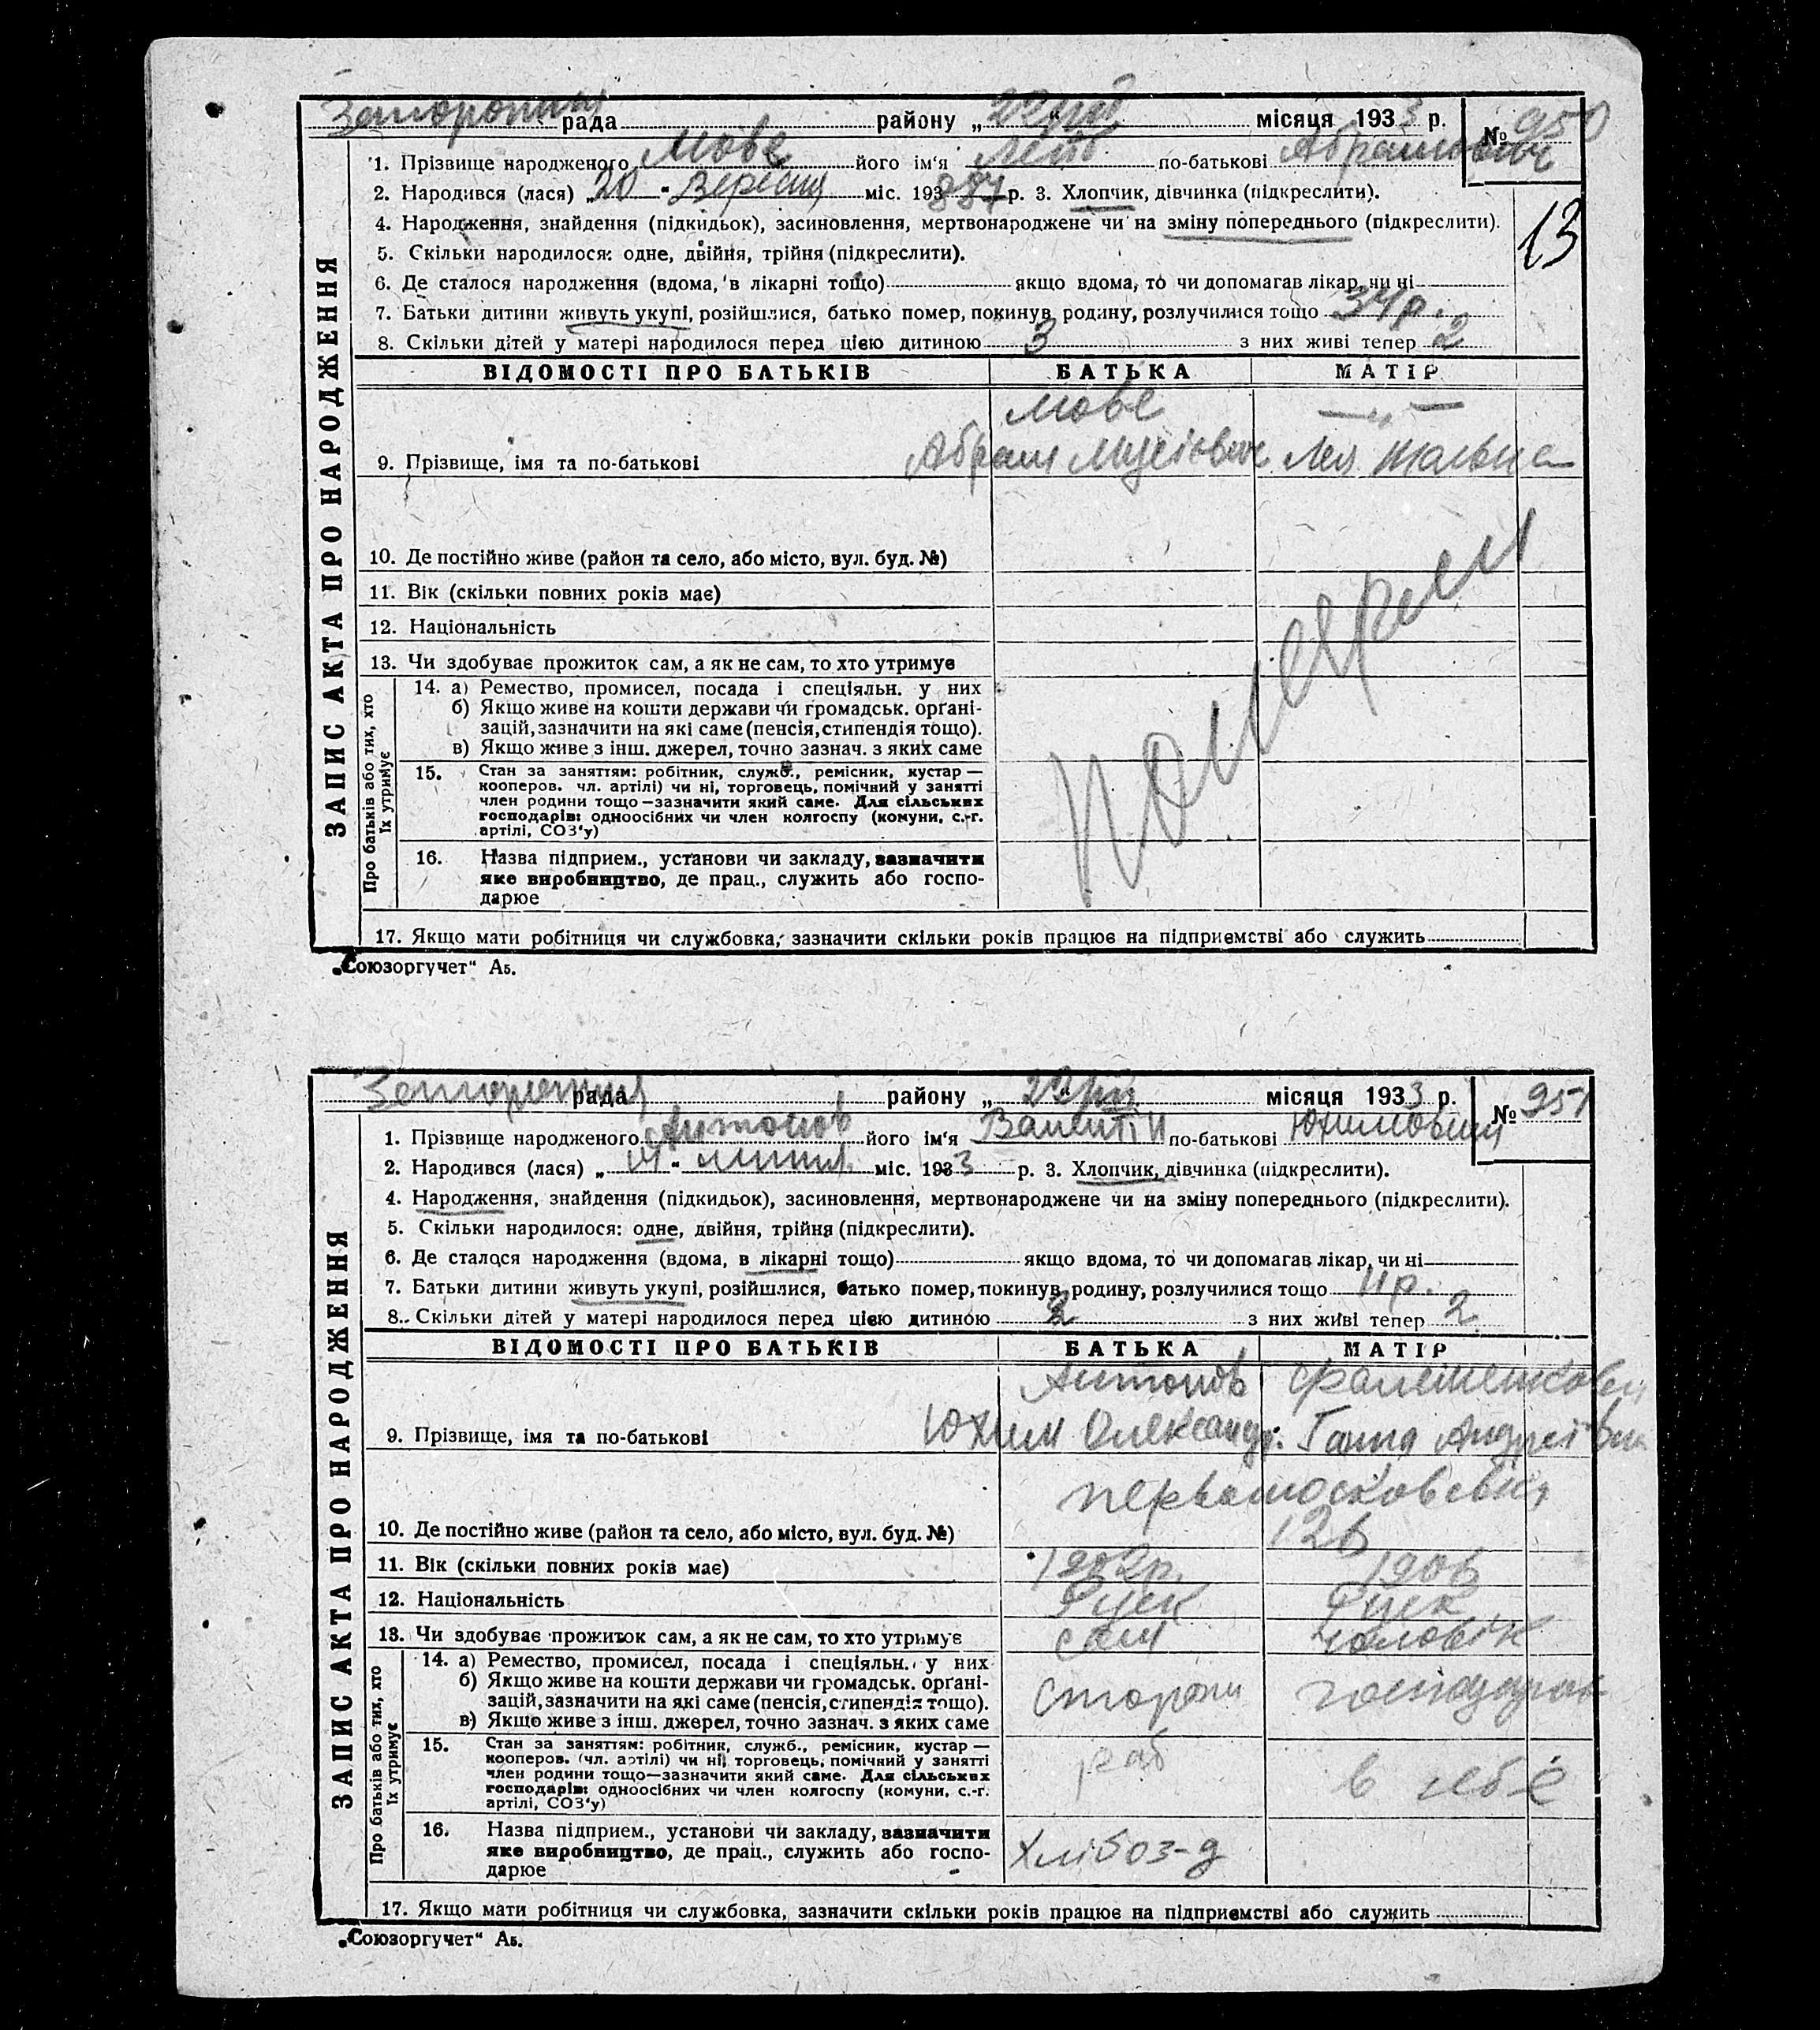 рада района „ " місяця 1933 р. № 950
1. Прізвище народженого Мове його ім'я Лейб по-батькові Абрамович
2. Народився (лася) „20" Вересня міс. 193 887 р. 3. Хлопчик, дівчинка (підкреслити).
4. Народження, знайдення (підкидьок), засиновлення, мертвонароджене чи на зміну попереднього (підкреслити).
13
5. Скільки народилося: одне, двійня, трійня (підкреслити).
6. Де сталося народження (вдома, в лікарні тощо) якщо вдома, то чи допомагав лікар, чи ні
7. Батьки дитини живуть укупі, розійшлися, батько помер, покинув родину, розлучилися тощо 34 р.
8. Скільки дітей у матері народилося перед цією дитиною 3 з них живі тепер 2
ЗАПИС АКТА ПРО НАРОДЖЕННЯ
ВІДОМОСТІ ПРО БАТЬКІВ БАТЬКА МАТІР
Мове — „ —
9. Прізвище, імя та по-батькові Абрам Мусієвич Лея
10. Де постійно живе (район та село, або місто, вул. буд. №)
11. Вік (скільки повних років має)
12. Національність
13. Чи здобуває прожиток сам, а як не сам, то хто утримує
Про батьків або тих, хто їх утримує
14. а) Ремество, промисел, посада і спеціяльн. у них
б) Якщо живе на кошти держави чи громадськ. орґані-
зацій, зазначити на які саме (пенсія, стипендія тощо).
в) Якщо живе з інш. джерел, точно зазнач. з яких саме
15. Стан за заняттям: робітник, служб., ремісник, кустар —
кооперов. чл. артілі) чи ні, торговець, помічний у занятті
член родини тощо—зазначити який саме. Для сільських
господарів: одноосібних чи член колгоспу (комуни, с.-г.
артілі, СОЗ'у)
16. Назва підприєм., установи чи закладу, зазначити
яке виробництво, де прац., служить або госпо-
дарює
17. Якщо мати робітниця чи службовка, зазначити скільки років працює на підприємстві або служить
„Союзоргучет" А5.
рада району „ " місяця 1933 р. № 951
1. Прізвище народженого Антонов його ім'я Валентін по-батькові Юхимович
2. Народився (лася) „ " липня міс. 1933 р. 3. Хлопчик, дівчинка (підкреслити).
4. Народження, знайдення (підкидьок), засиновлення, мертвонароджене чи на зміну попереднього (підкреслити).
5. Скільки народилося: одне, двійня, трійня (підкреслити).
6. Де сталося народження (вдома, в лікарні тощо) якщо вдома, то чи допомагав лікар, чи ні
7. Батьки дитини живуть укупі, розійшлися, батько помер, покинув родину, розлучилися тощо 11 р.
8. Скільки дітей у матері народилося перед цією дитиною з них живі тепер 2
ЗАПИС АКТА ПРО НАРОДЖЕННЯ
ВІДОМОСТІ ПРО БАТЬКІВ БАТЬКА МАТІР
Антонов
9. Прізвище, імя та по-батькові Юхим Олександр. Ганна Андріївна
10. Де постійно живе (район та село, або місто, вул. буд. №) 12в
11. Вік (скільки повних років має) 1902р. 1906
12. Національність Руск Руск
13. Чи здобуває прожиток сам, а як не сам, то хто утримує сам чоловік
Про батьків або тих, хто їх утримує
14. а) Ремество, промисел, посада і спеціяльн. у них
б) Якщо живе на кошти держави чи громадськ. орґані-
зацій, зазначити на які саме (пенсія, стипендія тощо). сторож господарка
в) Якщо живе з інш. джерел, точно зазнач. з яких саме
15. Стан за заняттям: робітник, служб., ремісник, кустар —
кооперов. (чл. артілі) чи ні, торговець, помічний у занятті
член родини тощо—зазначити який саме. Для сільських
господарів: одноосібних чи член колгоспу (комуни, с.-г.
артілі, СОЗ'у) раб в себе
16. Назва підприєм., установи чи закладу, зазначити
яке виробництво, де прац., служить або госпо- Хлібоз-д
дарює
17. Якщо мати робітниця чи службовка, зазначити скільки років працює на підприємстві або служить
„Союзоргучет" А5.